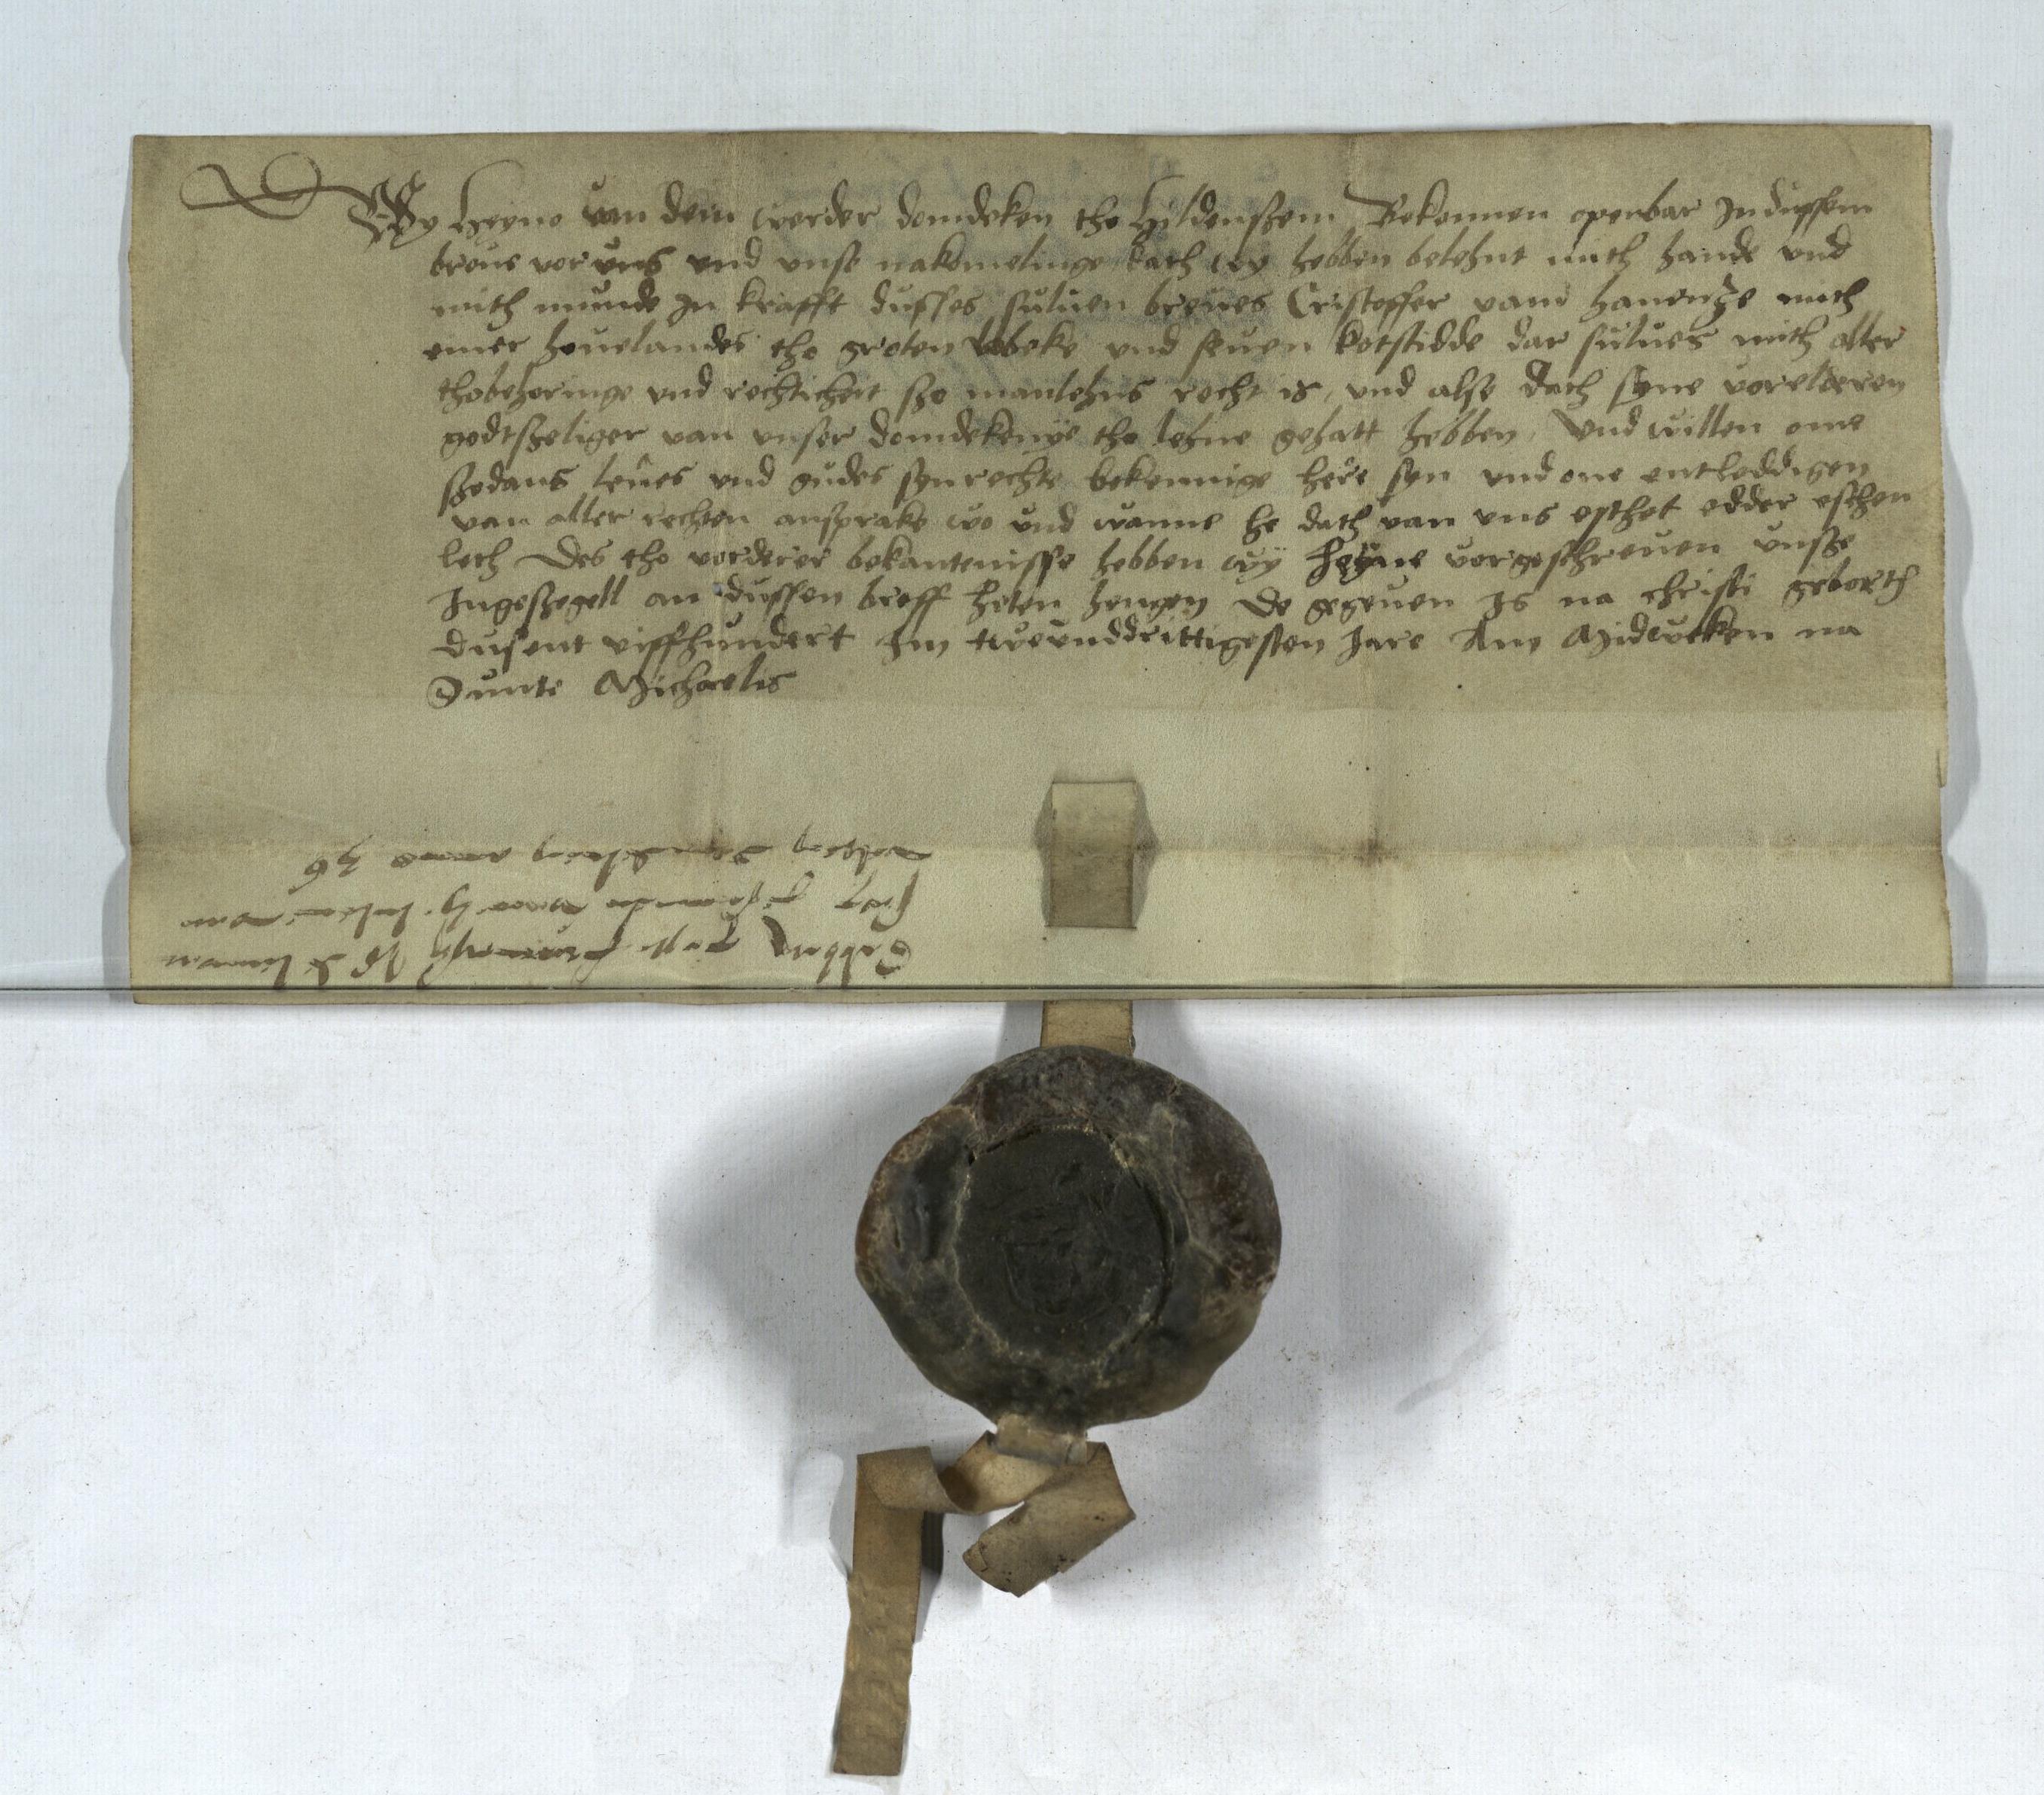 Wy Heyno van dem werder domdeken tho Hildenszem Bekennen openbar In dussem
breue vor uns vnd vnse nakomelinge dath wy hebben belehnt mith hande vnd
mith munde In krafft dusses suluen breues Cristoffer vam hauensze mith
einer houelandes tho groten lobeke vnd seuen kotstidde dar sulues mith aller
thobehoringe vnd rechticheit szo manlehns recht is, vnd alse dath syne vorelderen
godtszeliger van vnser domdekenÿe tho lehne gehatt hebben, Vnd willen ome
szodans leùes vnd gudes syn rechte bekennige here syn vnd one entleddigen
van aller rechten ansprake wo vnd wanne he dath van vns esschet edder esschen
leth Des tho vorderer bekantenisse hebben wÿ Heÿne vorgeschreuen vnsze
Ingeszegell an dussen breff heten hengen De gegeuen Is na christi geborth
Dusent viffhundert Im tweunddrittigesten Jare Am Midweken na
Sunte Michaelis
anno 36